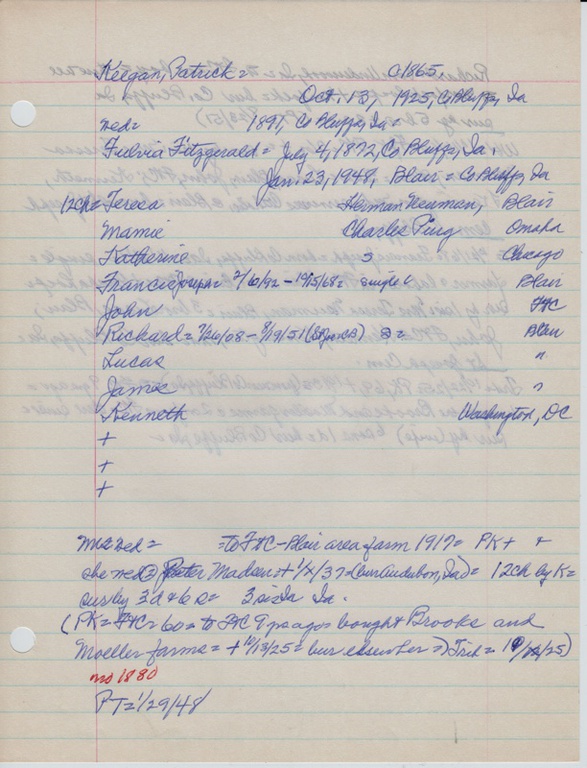 Keegan, Patrick = c1865,
Oct. 13, 1925, Co Bluffs, Ia
med = 1891, Co Bluffs, Ia =
Fulvia Fitzgerald = July 4, 1872, Co Bluffs, Ia,
Jan. 23, 1948, Blair = Co Bluffs, Ia
12ch = Teresa Herman Neuman, Blair
Mamie Charles Ping Omaha
Katherine s Chicago
Francis Joseph = 2/6/92 - 1/15/68 = single Blair
John FtC
Richard = 7/26/08 - 8/19/51 (St Jos Ci) s = Blair
Lucas "
James "
Kenneth Washington, DC
+
+
+
M12 med = = to FtC - Blair area farm 1917 = PK + +
she med 2) Peter Madsen = + 1/x/37 = (bur Audubon, Ia) = 12ch by K =
sur by 3 d & 6 s = 3 sis Ia.
(PK = FtC = 60 = to FtC 9 yrs ago bought Brooks and
Moeller farms = + 10/13/25 = bur elsewher = ) Trib =
no 1880
PT = 1/29/48